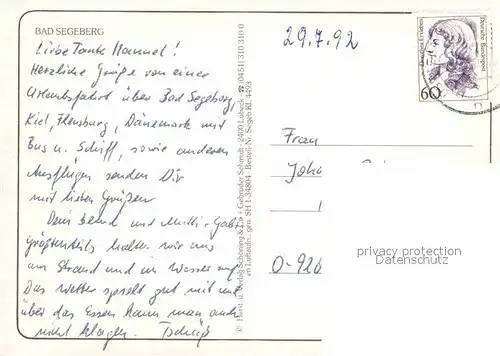 BAD SEGEBERG
Liebe Tante Hannel!
Herzliche Grüße von einer
Urlaubsfahrt über Bad Segeberg,
Kiel, Flensburg, Dänemark mit
Bus u. Schiff, sowie anderen
Ausflügen senden Dir
mit lieben Grüßen
Dein Bernd und Mutti-Gabi
Größtenteils halten wir uns
am Strand und im Wasser auf.
Das Wetter spielt gut mit und
über das Essen kann man auch
nicht klagen. Tschüß
© Horst u. Verlag Schöning & Co + Gebrüder Schmidt · 2400 Lübeck · ☎ 0451/3 10 31 0
Luftaufn. gen. SH 1-34804 · Bestell-Nr. Segeb KL 4493
29.7.92
Deutsche Bundespost
60
Frau
Joha
O-926
privacy protection
Datenschutz